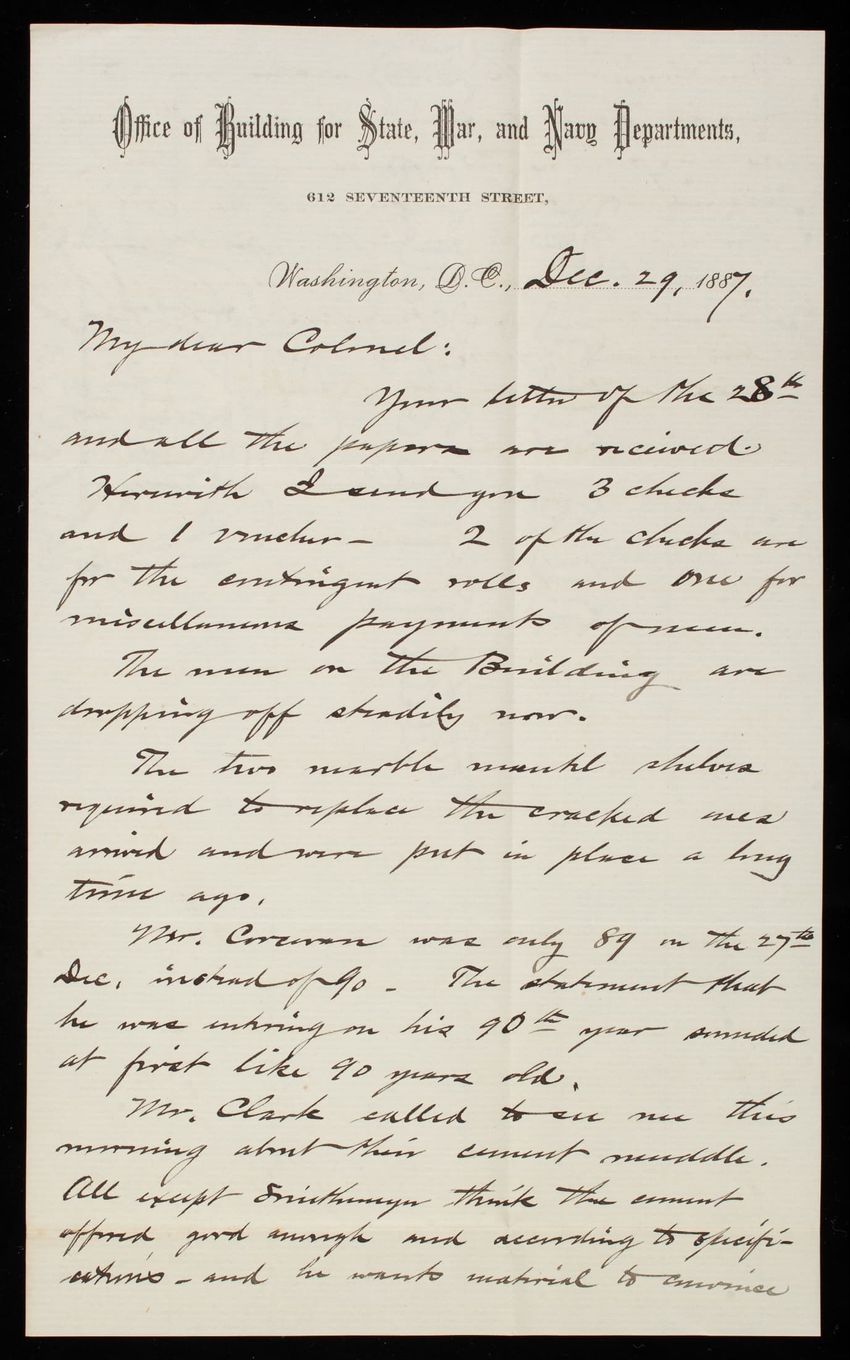 Office of Building for State, War, and Navy Departments,
612 SEVENTEENTH STREET,
Washington, D.C., Dec. 29, 1887.
My dear Colonel:
Your letter of the 28th
and all the papers are received.
Herewith I send you 3 checks
and 1 voucher - 2 of the checks are
for the contingent rolls and one for
miscellaneous payments of men.
The men on the Building are
dropping off steadily now.
The two marble mantel shelves
required to replace the cracked ones
arrived and were put in place a long
time ago.
Mr. Corcoran was only 89 on the 27th
Dec. instead of 90 - The statement that
he was entering on his 90th year sounded
at first like 90 years old.
Mr. Clark called to see me this
morning about their cement muddle.
All except Smithmeyer think the cement
offered good enough and according to specifi-
cations - and he wants material to convince